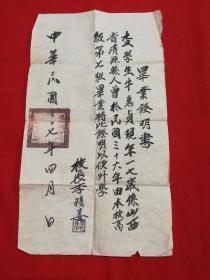 畢業證明書
查學生牛惠貞現年一七歲係山西
省清源縣人曾於民國三十六年由本校高
級第七級畢業特此證明以便升學
校長李
中華民國三十七年四月 日